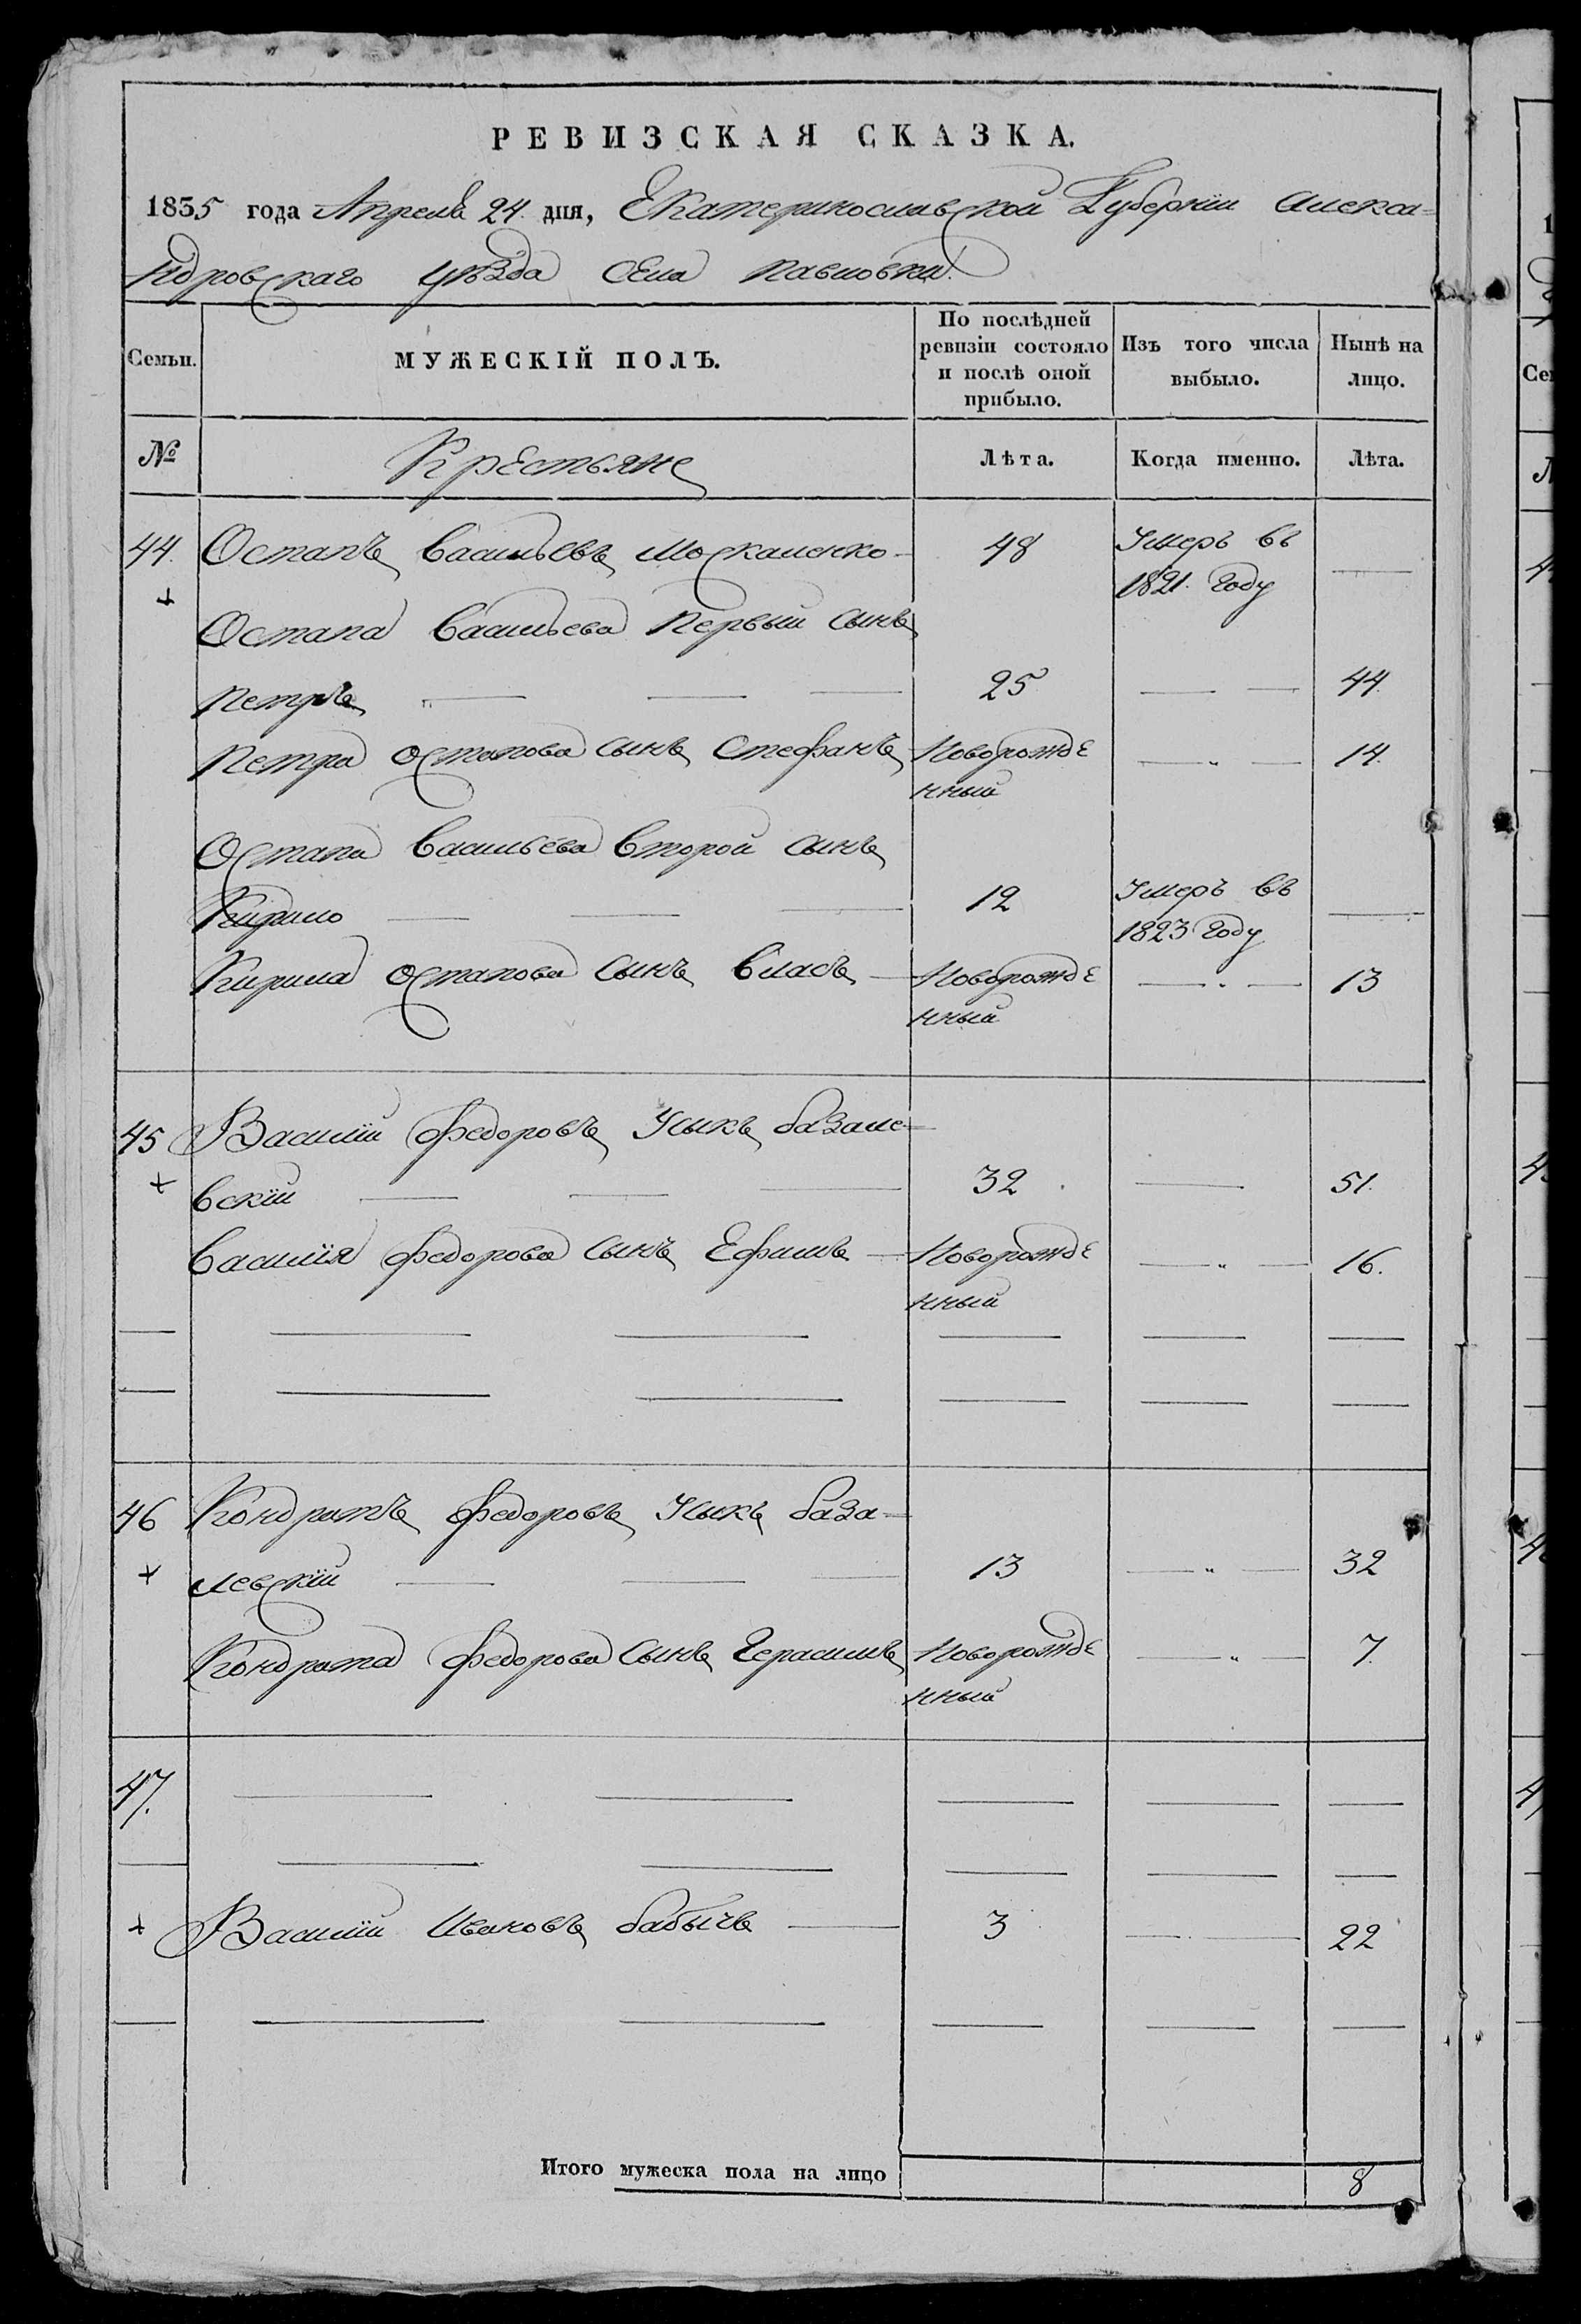 РЕВИЗСКАЯ СКАЗКА.
1835 года Апреля 24 дня, Екатеринославской Губернїи Алекса=
ндровскаго уѣзда Села Павловки
Семьи.
МУЖЕСКІЙ ПОЛЪ.
По послѣдней ревизіи состояло и послѣ оной прибыло.
Изъ того числа выбыло.
Нынѣ на лицо.
№ Крестьяне Лѣта. Когда именно. Лѣта.
44. Остапъ Васильевъ Москаленко 48 Умеръ въ
1821. Году
Остапа Васильева Первый сынъ
Петръ 25 44.
Петра Остапова сынъ Стефанъ Новорожде 14.
нный
Остапа Васильева Второй сынъ
Кирило 12 Умеръ въ
1823 Году
Кирила Остапова сынъ Власъ Новорожде 13
нный
45 Василїй Федоровъ Усыкъ базале=
вскїй 32 51.
Василїя Федорова сынъ Ефимъ Новорожде 16.
нный
46 Кондратъ Федоровъ Усыкъ база=
левскїй 13 32
Кондрата Федорова сынъ Герасимъ Новорожде 7.
нный
47.
Василїй Ивановъ бабычъ 3 22
Итого мужеска пола на лицо 8